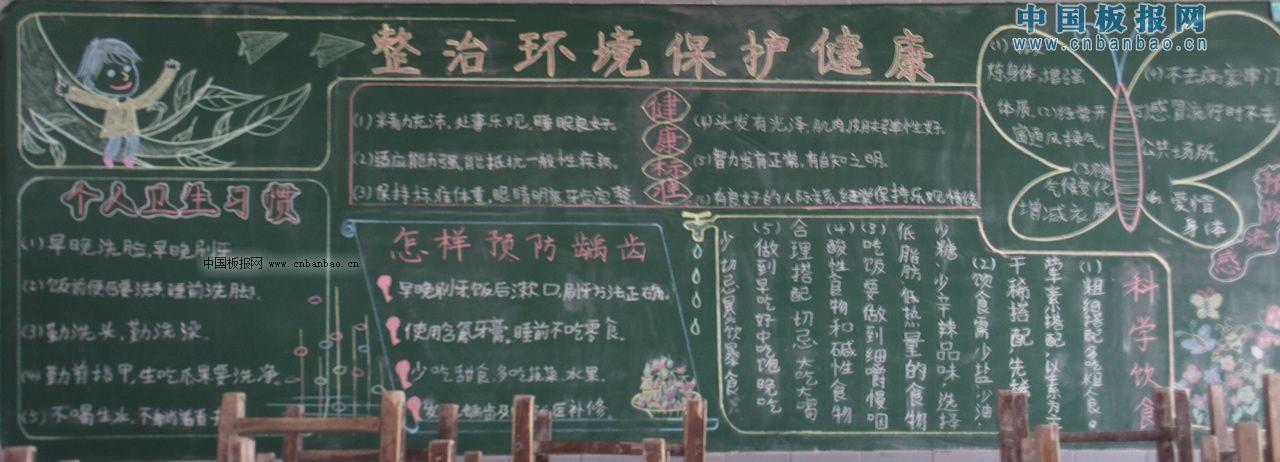 中国板报网
www.cnbanbao.cn
整治环境保护健康
健康标准
(1)精力充沛、处事乐观，睡眠良好。
(2)适应能力强，能抵抗一般性疾病。
(3)保持标准体重，眼睛明亮牙齿完整
(4)头发有光泽，肌肉，皮肤弹性好。
(5)智力发育正常，有自知之明。
(6)有良好的人际关系，经常保持乐观情绪
个人卫生习惯
(1)早晚洗脸，早晚刷牙
(2)饭前便后要洗手睡前洗脚。
(3)勤洗头，勤洗澡
(4)勤剪指甲，生吃瓜果要洗净。
(5)不喝生水，不
中国板报网 www.cnbanbao.cn
怎样预防龋齿
早晚刷牙饭后漱口，刷牙方法正确。
使用含氟牙膏，睡前不吃零食。
少吃甜食，多吃蔬菜、水果。
医补修。
科学饮食
(1)粗细搭配多吃粗食。
荤素搭配，以素为主
干稀搭配，先稀
(2)饮食需少盐少油，
少糖少辛辣品味，选择
低脂肪、低热量的食物
(3)吃饭要做到细嚼慢咽
(4)酸性食物和碱性食物
合理搭配切忌大吃大喝
(5)做到早吃好中吃饱晚吃
少，切忌暴饮暴食
预防流感
(1)
炼身体，增强
体质，(2)经常开
窗通风换气
(3)
气候变化
增减衣服
(4)不去病家串门
(5)感冒流行时不去
公共场所。
爱惜
身体